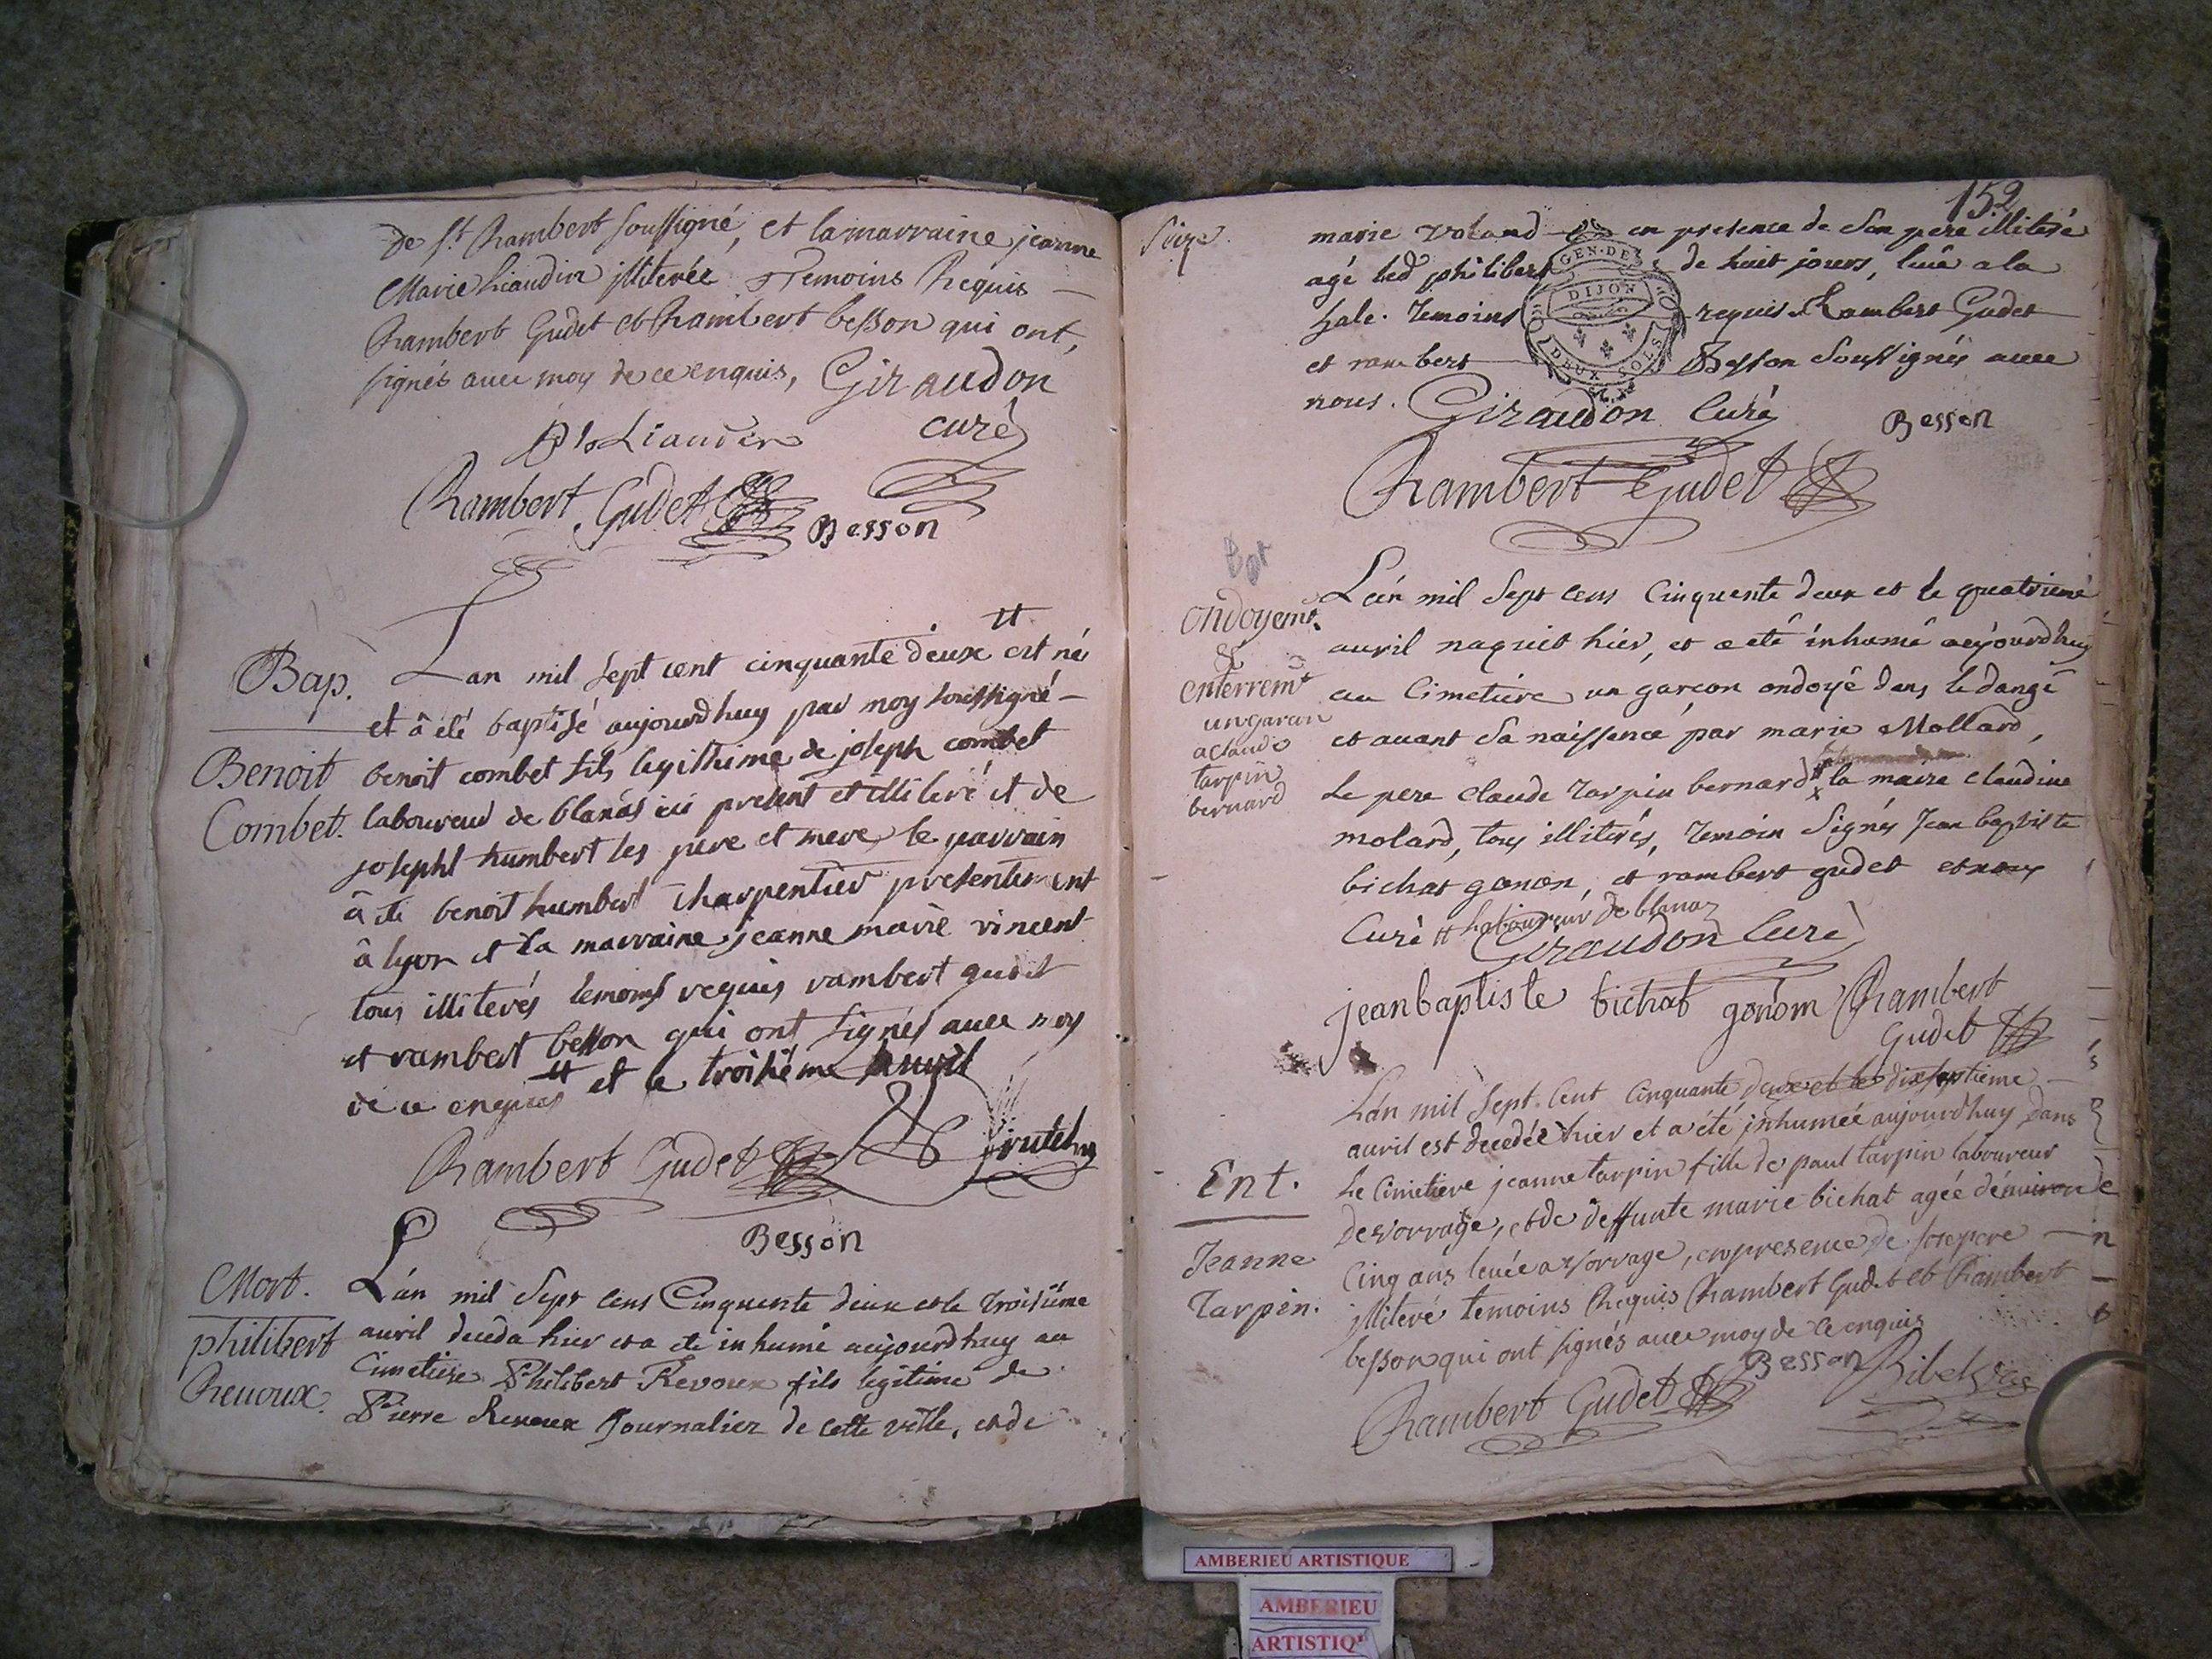 de St. Rambert soussigné, et la marraine jeanne
Marie Liaudin illiterée Temoins Requis —
Rambert Gudet et Rambert besson qui ont,
signés avec moy de ce enquis, Giraudon
curé
Liaudin
Rambert Gudet
Besson
Bap.
Benoit
Combet.
Lan mil sept cent cinquante deux # est né
et â élé baptisé aujourdhuy par moy soussigné —
benoit combet fils legithime de joseph combet
laboureur de blanás ici present et illiteré et de
josepht humbert les pere et mere, le parrain
â ete benoit humbert charpentier presentement
â lyon et la marraine jeanne marie vincent
tous illiterés temoins requis rambert gudet
et rambert besson qui ont signés avec moy
de ce enquis # et le troisiéme avril
Rambert Gudet
Besson
Mort.
philibert
Revoux.
L'án mil Sept cens Cinquente deux et le troisiéme
avril deceda hier et a eté inhumé aujourdhuy au
Cimetiere Philibert Revoux fils légitime de
Pierre Revoux Journalier de cette ville, et de
152
Suize.
marie voland en presence de Son pere illiteré
agé led philibert de huit jours, levé a la
hale. Temoins requis Rambert Gudet
et rambert Besson Soussignés avec
nous. Giraudon Curé
GEN. DE
DIJON
DEUX SOLS
Besson
Rambert Gudet
Ondoyemt.
&
enterremt
un garcon
a claude
tarpin
bernard
L'án mil Sept cens Cinquente deux et le quatrieme
avril naquit hier, et a eté inhumé aujourdhuy
au Cimetiere un garcon ondoyé dans le dangé
et avant Sa naissence par marie Mollard,
Le pere claude Tarpin bernard # la maire claudine
molard, tous illiterés, Temoin Signés Jean baptiste
bichat gonon, et rambert gudet et nous
Curé # Laboureur de blanaz
Giraudon Curé
jeanbaptiste bichat gonom Rambert
Gudet
Ent.
Jeanne
Tarpin.
L'án mil Sept Cent Cinquante deux et le dixseptieme —
avril est decedée hier et a été inhumée aujourd'huy dans
Le Cimetiere jeanne tarpin fille de paul tarpin laboureur
de Vorrage, et de deffunte marie bichat agée d'environ
Cinq ans levée a Vorrage, en presence de son pere —
illiteré temoins Requis Rambert Gudet et Rambert
besson qui ont signés avec moy de ce enquis
Besson
Rambert Gudet
AMBERIEU ARTISTIQUE
AMBERIEU
ARTISTIQ